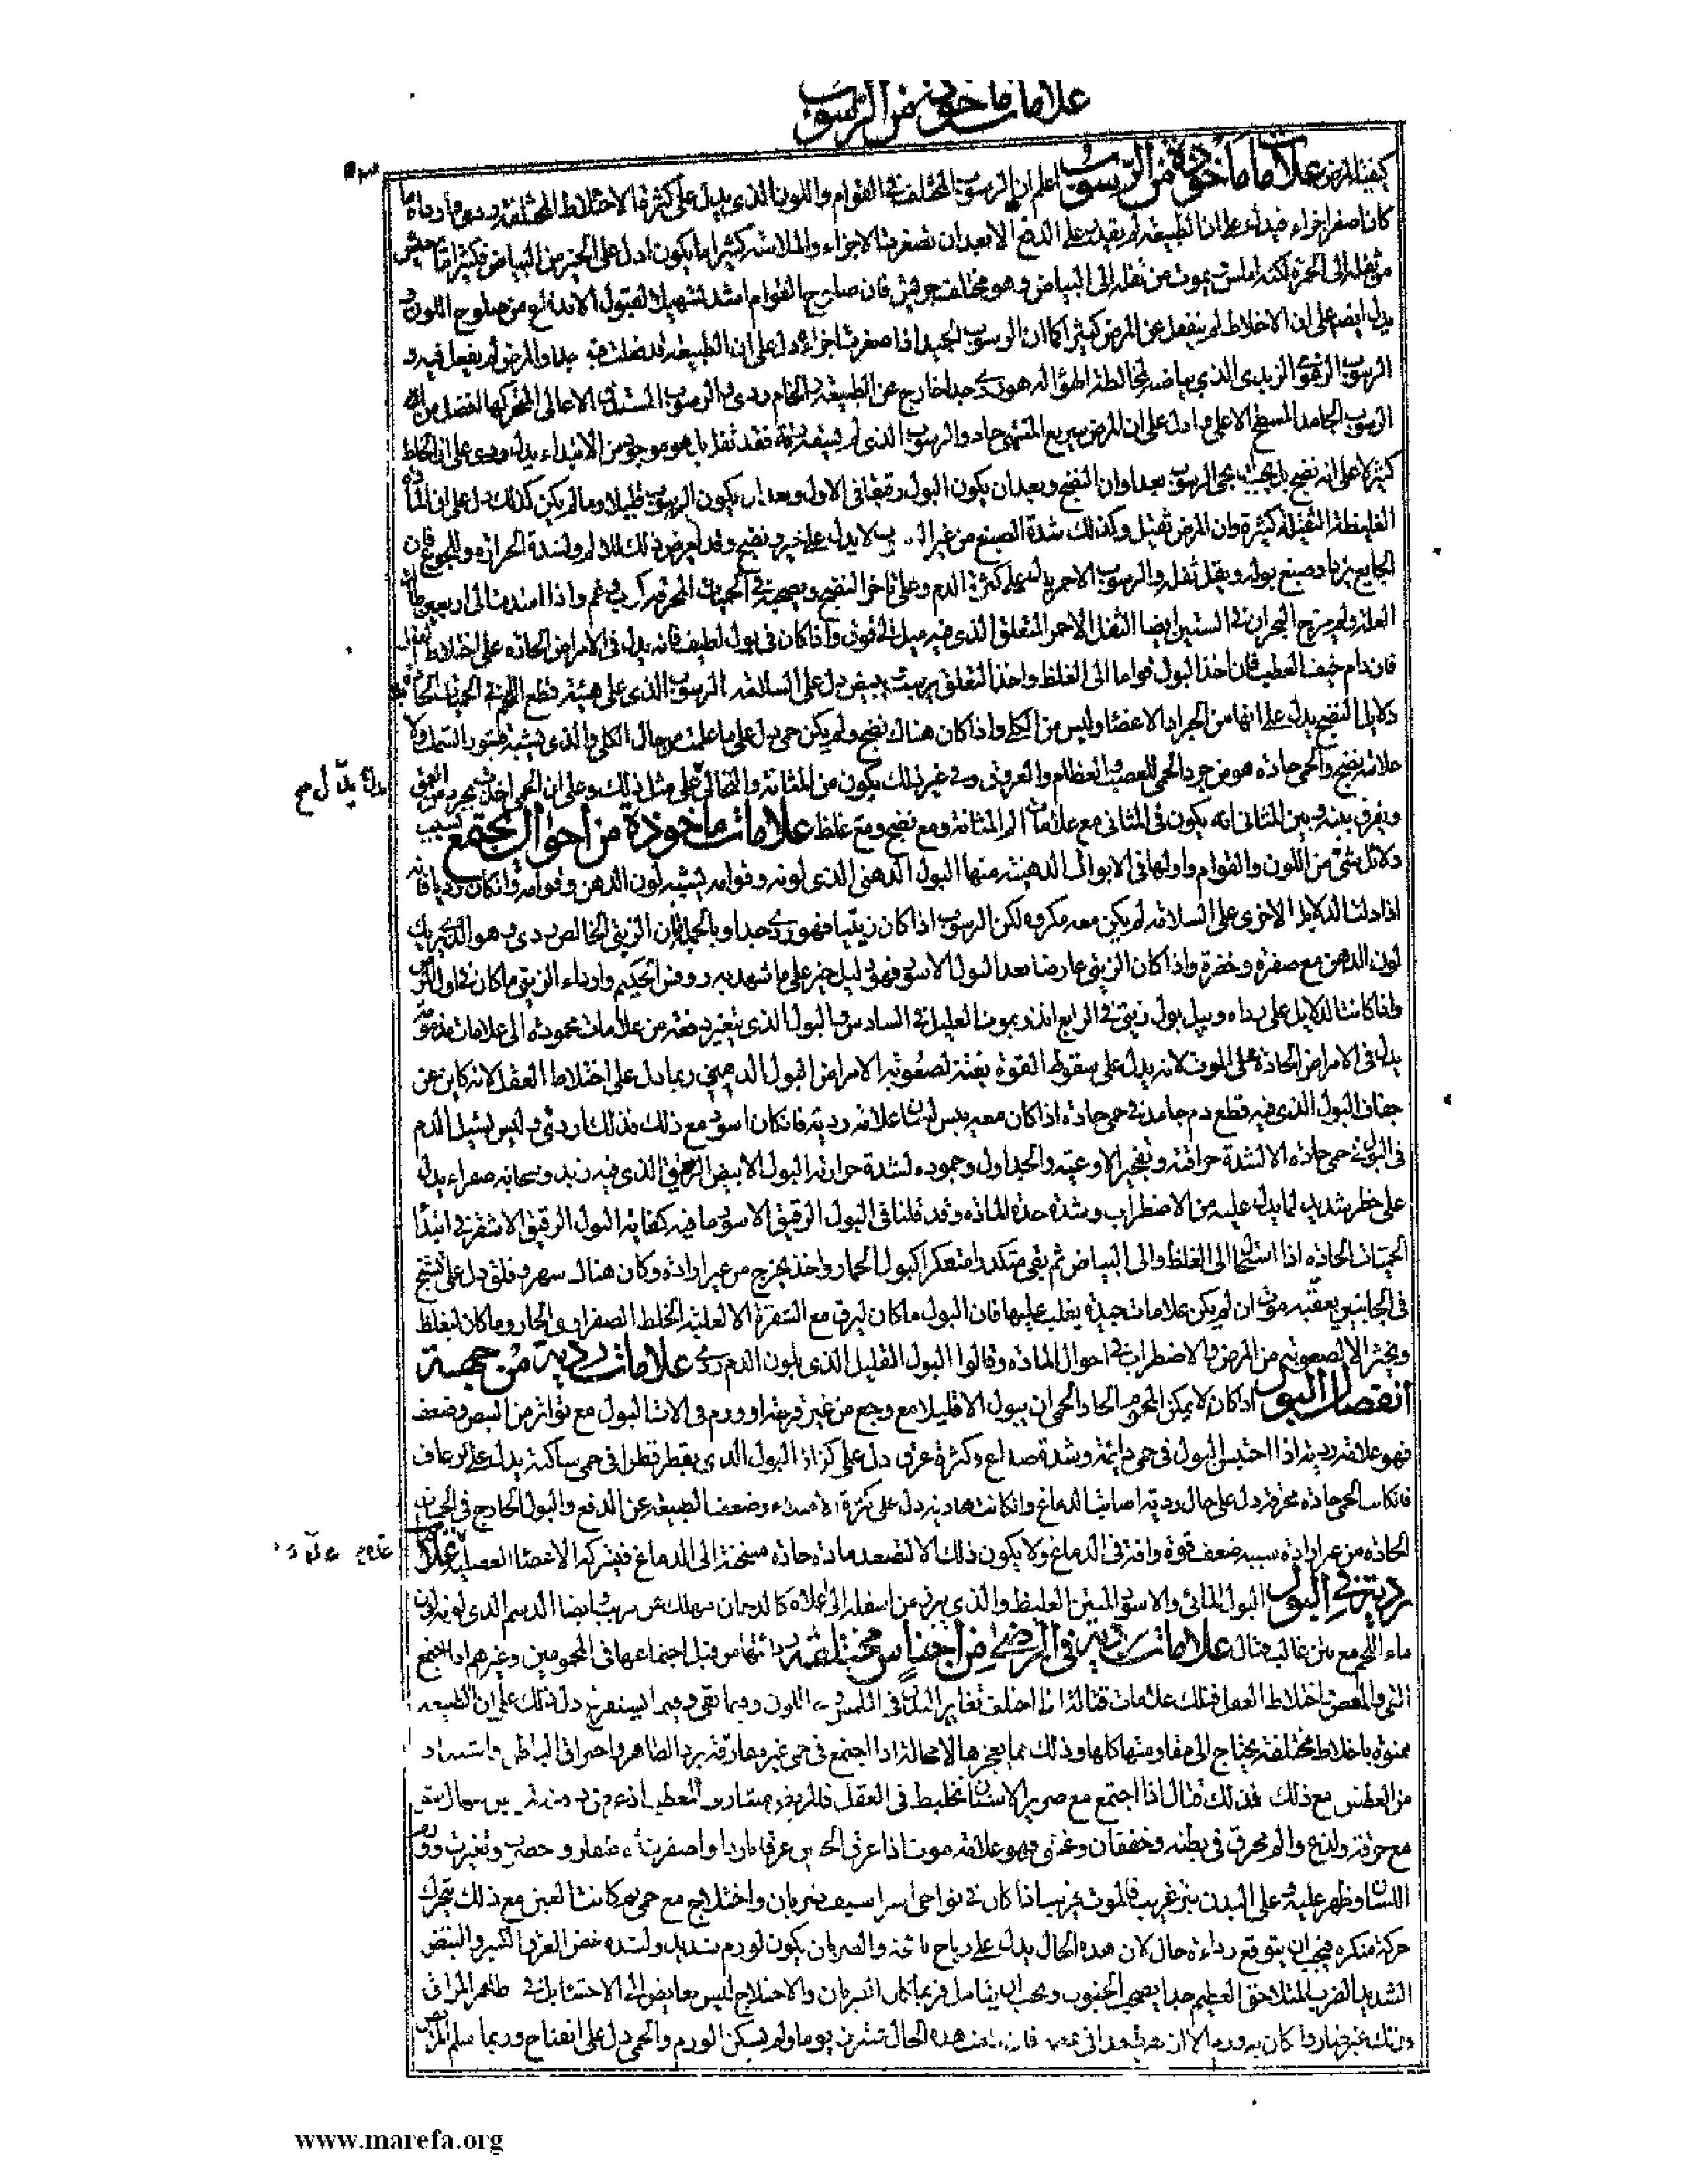 علامات ماخوذة من الرسوب
كيفية المرض علامات ماخوذة من الرسوب اعلم ان الرسوب المختلف في القوام واللون الذي يدل على كثرة الاختلاط المختلفة ردي وارداه ما
كان اصغر اجزاء فيدل على ان الطبيعة لم يقدر على الدفع الا بعد ان تصغرت الاجزاء والملاسة كثيرا ما يكون ادل على الخير من البياض فكثيرا ما يعيش
من ثفله الى الحمرة لكنه املس ويموت من ثفله الى البياض وهو مختلف جريش فان صلوح القوام اشد تسهيلا لقبول الاندفاع من صلوح اللون و
يدل ايضا على ان الاخلاط لم ينفعل عن المرض كثيرا كما ان الرسوب الجيد اذا صغرت اجزاءه دل على ان الطبيعة قد فعلت فيه جدا والمرض لم يفعل فيه و
الرسوب الرغوي الزبدي الذي بياضه لمخالطة الهوائية هو ردي جدا خارج عن الطبيعة والخام ردي والرسوب المستدق الاعالي المتحركها افضل من
الرسوب الجامد المسطح الاعلى وادل على ان المرض سريع المنتهى حاد والرسوب الذي لم يسبقه رقة فقد ثفل بل هو موجود من الابتداء يدل ردي على ان الخلط
كثير لا على انه نضج بل يجب ان يجي الرسوب بعد اوان النضج وبعد ان يكون البول رقيقا في الاول وبعد ان يكون الرسوب قليلا وما لم يكن كذلك دل على ان المادة
الغليظة الثقيلة كثيرة وان المرض ثقيل وكذلك شدة الصبغ من غير لا يدل على خير ونضج وقد يعرض ذلك للالم ولشدة الحرارة وللجوع فان
الجايع يزداد صبغ بوله ويقل ثفله والرسوب الاحمر يدل على كثرة الدم وعلى تاخر النضج ويصحبه في الحميات المحرقة كرب وغم واذا امتد الى اربعين طالت
العلة ولم يرج البحران في الستين ايضا الثفل الاحمر المتعلق الذي فيه ميل الى فوق واذا كان في بول لطيف فانه يدل في الامراض الحادة على اختلاط العقل
فان دام خيف العطب فان اخذ البول قواما الى الغلظ واخذ المتعلق يرسب ويبيض دل على السلامة الرسوب الذي على هيئة قطع اللحم في الحميات الحادة
دلايل النضج يدل على انها من انجراد الاعضا وليس من الكلى واذا كان هناك نضج ولم يكن حمى دل على ما علمت من حال الكلى والذي يشبه قشور السمك ولا
علامة نضج والحمى حادة هو من جرد الحمى للعصب والعظام والعروق وفي غير ذلك يكون من المثانة والنخالي على مثل ذلك وعلى ان الحمى اخذت تجرد من العمق
ويفرق بينه وبين المثاني انه يكون في المثاني مع علامات الم المثانة ومع نضج ومع غلظ علامات ماخوذة من احوال تجتمع بسبب
دلائل شتى من اللون والقوام واولها في الابوال الدهنية منها البول الدهني الذي لونه وقوامه يشبه لون الدهن وقوامه وان كان رديا فانه
اذا دلت الدلايل الاخرى على السلامة لم يكن معه مكروه لكن الرسوب اذا كان زيتيا فهو ردي جدا وبالجملة فان الزيتي الخالص ردي وهو الذي يريك
لون الدهن مع صفرة وخضرة واذا كان الزيتي عارضا بعد البول الاسود فهو دليل خير على ما شهد به روفس الحكيم وارداء الزيتي ما كان في اول المرض
واذا كانت الدلايل على رداءة وبيل بول زيتي في الرابع انذر بموت العليل في السادس والبول الذي يتغير دفعة من علامات محمودة الى علامات مذمومة
يدل في الامراض الحادة على الموت لانه يدل على سقوط القوة بغتة لصعوبة الامراض البول الدهني ربما دل على اختلاط العقل لانه كاين عن
جفاف البول الذي فيه قطع دم جامد في حمى حادة اذا كان معه يبس لسان علامة ردية فان كان اسود مع ذلك فذلك اردى وليس يسيل الدم
في البول في حمى حادة الا لشدة حرافته وتفجير الاوعية والجداول وجموده لشدة حرارته البول الابيض الرقيق الذي فيه زبد وسحابة صفراء يدل
على خطر شديد لما يدل عليه من الاضطراب وشدة حدة المادة وقد قلنا في البول الرقيق الاسود ما فيه كفاية البول الرقيق الاشقر في ابتداء
الحميات الحادة اذا استحال الى الغلظ والى البياض ثم بقي متكدرا متعكرا كبول الحمار واخذ يخرج من غير ارادة وكان هناك سهر وقلق دل على تشنج
في الجانبين يعقبه موت ان لم يكن علامات جيدة يغلب عليها فان البول ما كان ليرق مع الشقرة الا لغلبة الخلط الصفراوي الحار وما كان ليغلظ
ويخثر الا لصعوبة من المرض والاضطراب في احوال المادة وقالوا البول القليل الذي بلون الدم ردي علامات ردية من جهة
انفصال البول اذا كان لا يمكن المحموم الحاد الحمى ان يبول الا قليلا مع وجع من غير قرحة او ورم في الات البول مع تواتر من النبض وضعف
فهو علامة ردية اذا احتبس البول في حمى دايمة وشدة صداع وكثرة عرق دل على كزاز البول الذي يقطر قطرا في حمى ساكنة يدل على رعاف
فان كانت الحمى حادة محرقة دل على حال ردية اصابت الدماغ وان كانت هادية دل على كثرة الامتلاء وضعف الطبيعة عن الدفع والبول الخارج في الحميات
الحادة من غير ارادة سببه ضعف قوة وافة في الدماغ ولا يكون ذلك الا لتصعد مادة حادة مسخنة الى الدماغ فيشركه الاعضا العصبية علامات
ردية في البول البول المائي والاسود المنتن الغليظ والذي يرد من اسفله الى اعلاه كالدخان مهلك عن قريب ايضا الدسم الذي لونه لون
ماء اللحم مع نتن غالب قتال علامات ردية في المرضى من اجناس مختلفة رداتها من قبل اجتماعها في المحمومين وغيرهم اذا اجتمع
القي والمغص واختلاط العقل فتلك علامات قتالة اذا اختلف تغاير البدن في الملمس واللون وفيما يقي وفيما يستفرغ دل ذلك على ان الطبيعة
ممنوة باخلاط مختلفة يحتاج الى مقاومتها كلها وذلك مما يعجزها لا محالة اذا اجتمع في حمى غير مفارقة برد الظاهر واحتراق الباطن واشتداد
من العطش مع ذلك فذلك قتال اذا اجتمع مع صرير الاسنان تخليط في العقل فالمريض مقارب العطب
مع حرقة ولذع والم محرق في بطنه وخفقان وغشي فهو علامة موت اذا عرق عرقا باردا واصفرت وتغيرت وورم
اللسان وظهر على البدن بثر غريب فالموت قريب اذا كان في نواحي الشراسيف ضربان واختلاج مع حمى ثم كانت العين مع ذلك يتحرك
حركة منكرة فيجب ان يتوقع رداءة حال لان هذه الحال يدل على رياح نافخة والضربان يكون لورم شديد ولشدة نبض العرق الكبير والنبض
الشديد الضرب المتلاحق العظيم جدا يصحب الجنون ويجب ان يتامل فربما كان الضربان والاختلاج ليس بغايص الى الاحشا بل في ظاهر المراق
وذلك غير ضار وان كان به ورم الا ان فان بقيت هذه الحال عشرين يوما ولم يسكن الورم والحمى دل على انفتاح وربما سلم المرض
www.marefa.org